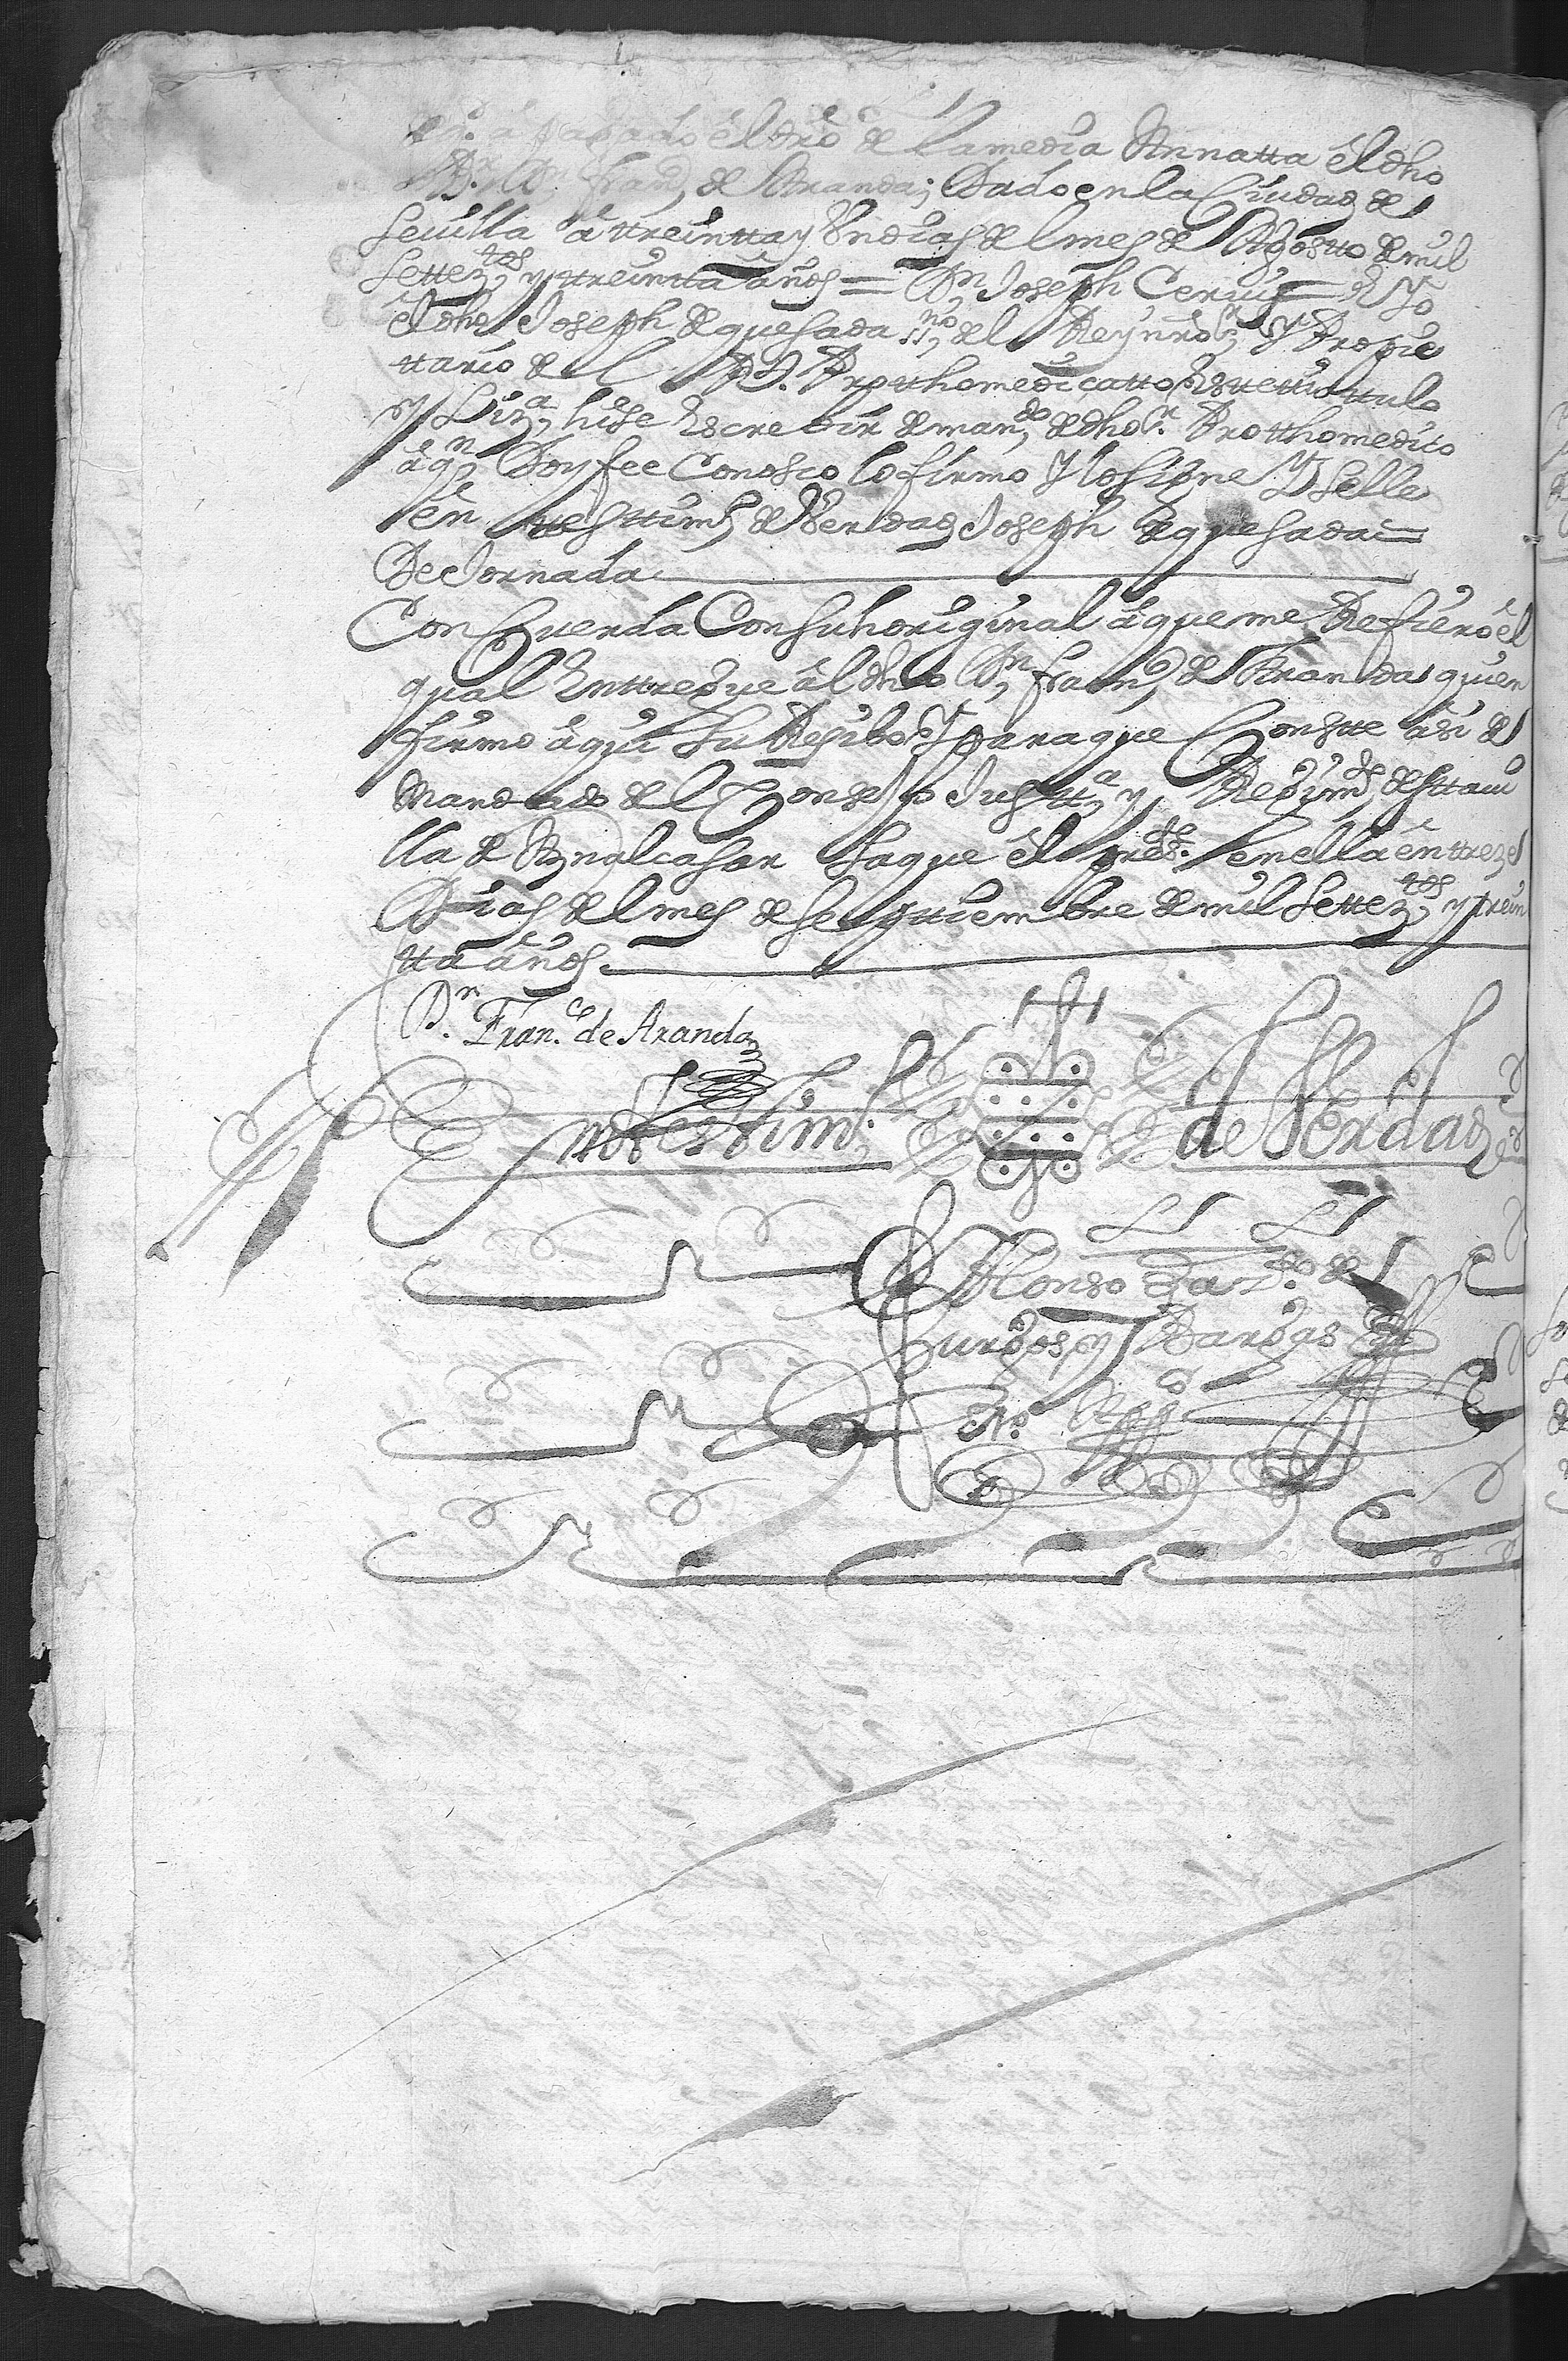 a pagado el dro de la media Annatta el dho
Dn Fran,co de Aranda; Dado en la Ciudad de
Sevilla a ttreintta y Un dias de el mes de Agostto de mil
settez,tos y ttreintta años = Dn Joseph Cervi = E Yo
el dho Joseph de quesada ss,no del Rey nro s,r y Propie
ttario de el Rl. Protthomedicatto Estte ttittulo
y Liz,a hise Escrebir de man,do de dho sr. Protthomedico
a q,n Doy fee Conosco lo firmo Y lo signe Y selle
en ttesttim,o de Verdad, Joseph de quesada =
De Jornada
Concuerda Con su horiginal a que me Refiero el
qual Enttregue al dho Dn, Fran,co de Aranda quien
firmo aqui su Resibo Y para que Constte asi de
Mandado de el Consejo Justt,a y Regim,to de estta vi
lla de Aznalcasar saque el pres.te en ella en ttreze
Dias de el mes de Septtiembre de mil settez,tos y ttrein
tta años
Dn. Fran.co de Aranda
En testtim.o de Verdad
Alonso de
Burgos y Bargas